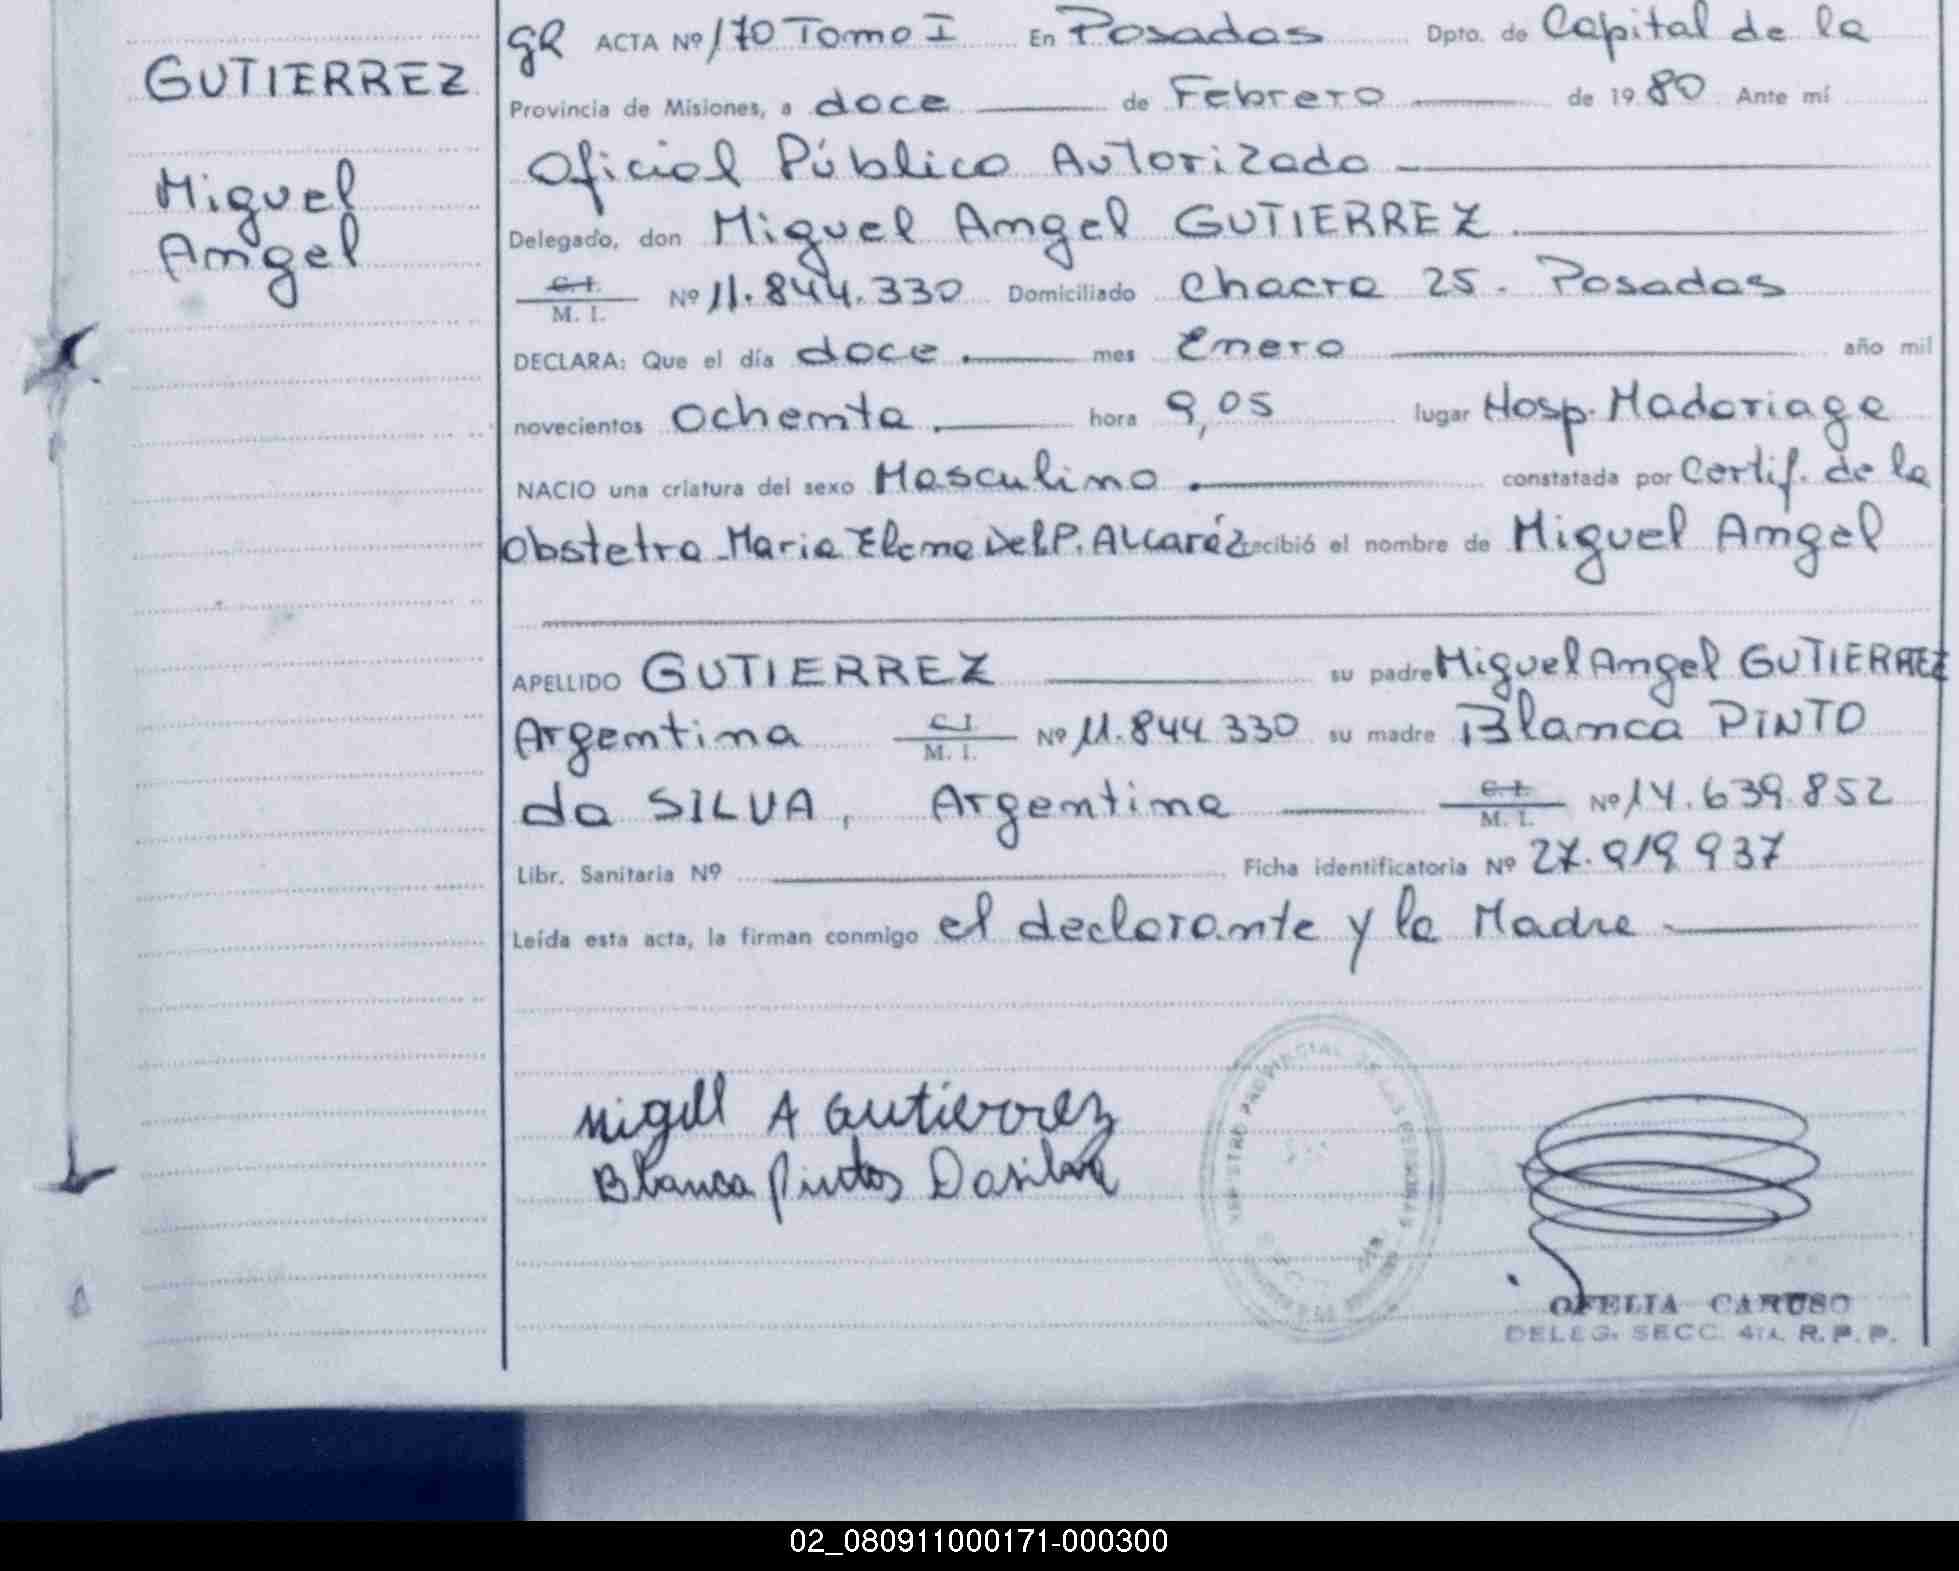 GUTIERREZ
Miguel
Angel
gR ACTA Nº 170 Tomo I En Posadas Dpto. de Capital de la
Provincia de Misiones, a doce de Febrero de 1980 Ante mí
Oficial Público Autorizado
Delegado, don Miguel Angel GUTIERREZ
C.I. M. I. Nº 11.844.330 Domiciliado Chacra 25. Posadas
DECLARA: Que el día doce mes Enero año mil
novecientos Ochenta hora 9,05 lugar Hosp. Madariaga
NACIO una criatura del sexo Masculino constatada por Certif. de la
Obstetra Maria Elena Del P. Alcaráz recibió el nombre de Miguel Angel
APELLIDO GUTIERREZ su padre Miguel Angel GUTIERREZ
Argentina C.I. M. I. Nº 11.844.330 su madre Blanca PINTO
da SILVA, Argentina C.I. M. I. Nº 14.639.852
Libr. Sanitaria Nº Ficha identificatoria Nº 27.919.937
Leída esta acta, la firman conmigo el declarante y la Madre
Migell A Gutierrez
Blanca Pintos Dasilva
OFELIA CARUSO
DELEG. SECC. 4TA. R. P. P.
02_080911000171-000300